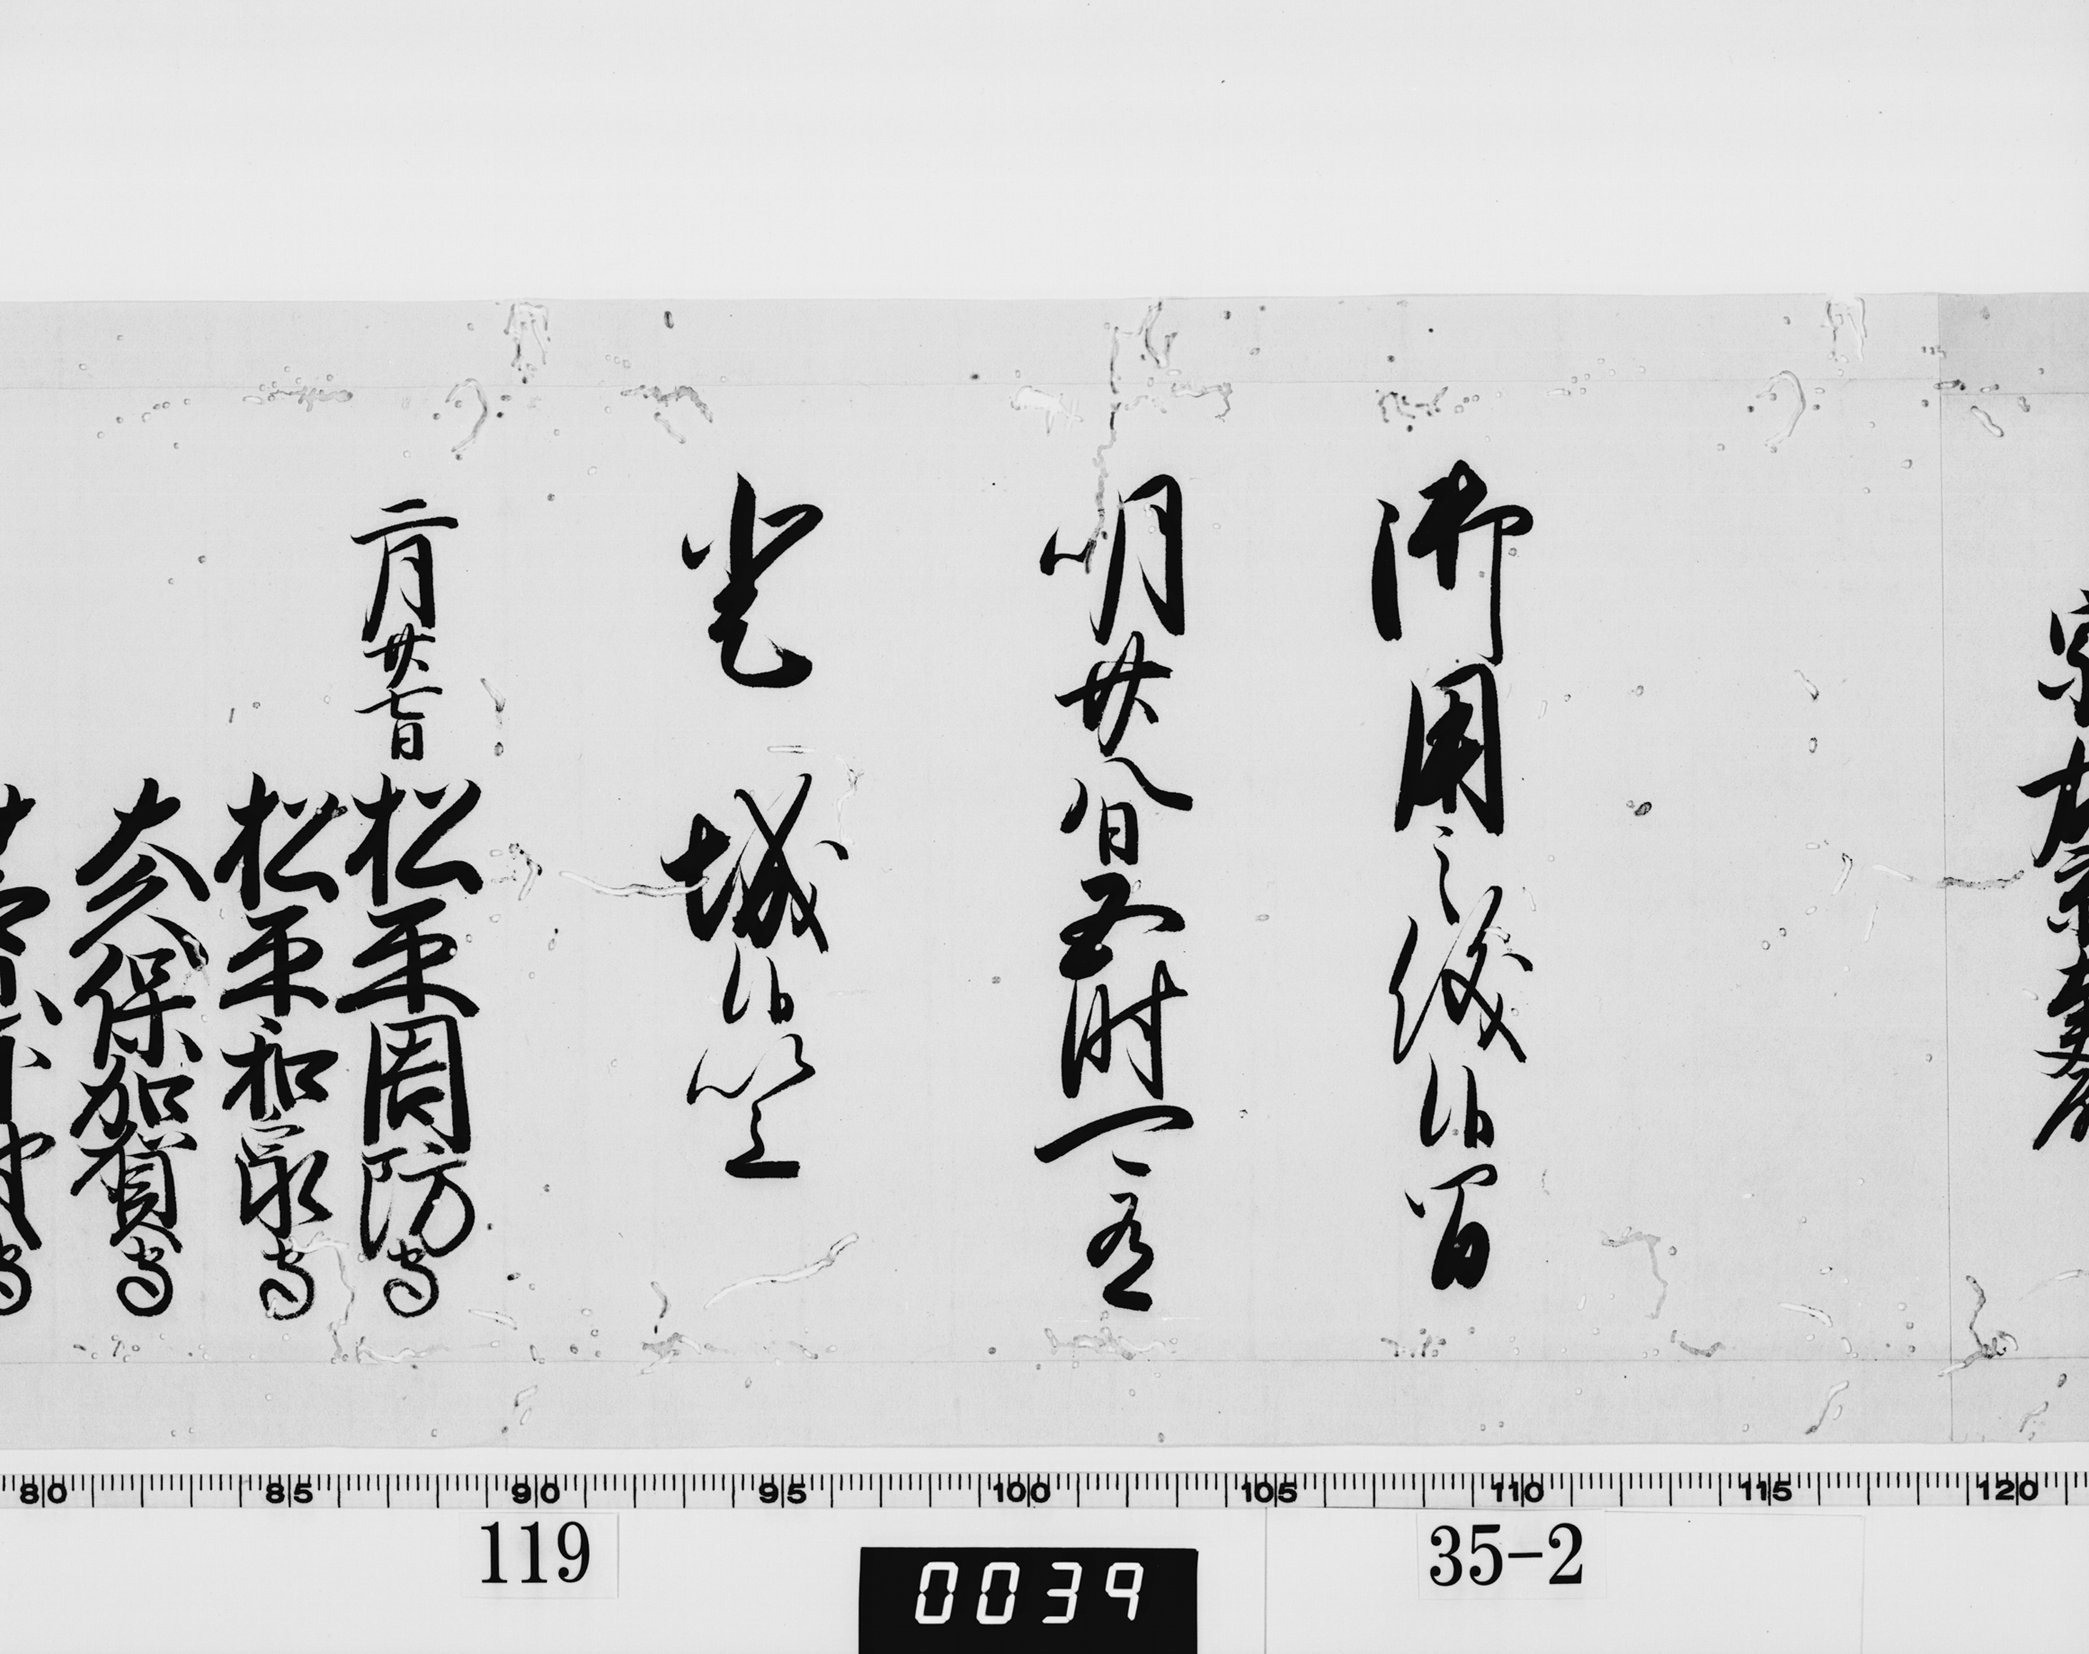 御用之儀候間
明廿八日五時可有
登 城候以上
二月廿七日 松平周防守
松平和泉守
大久保加賀守
80 85 90 95 100 105 110 115 120
119
0039
35-2